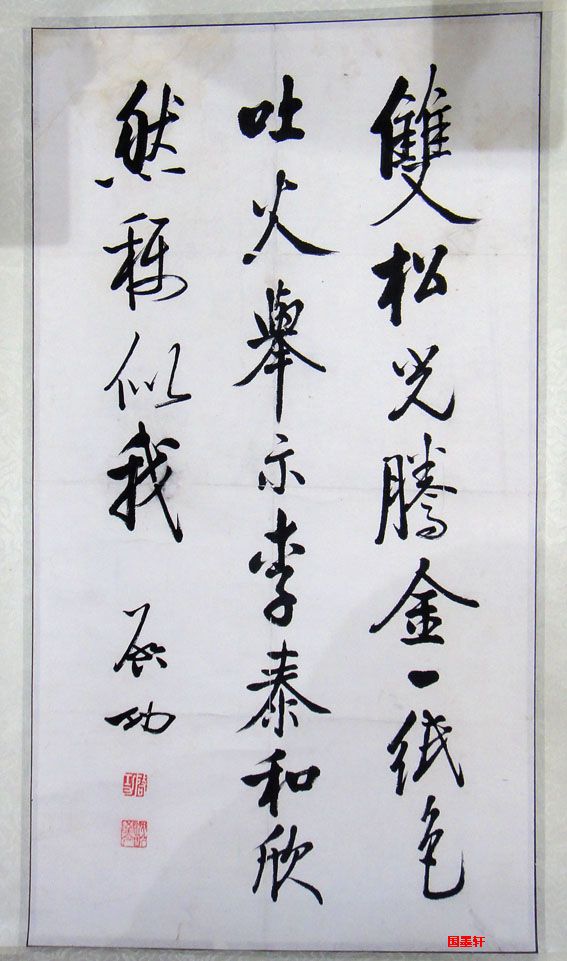 雙松光騰金一紙色
吐火舉示李泰和欣
然稱似我
啟功
国墨轩